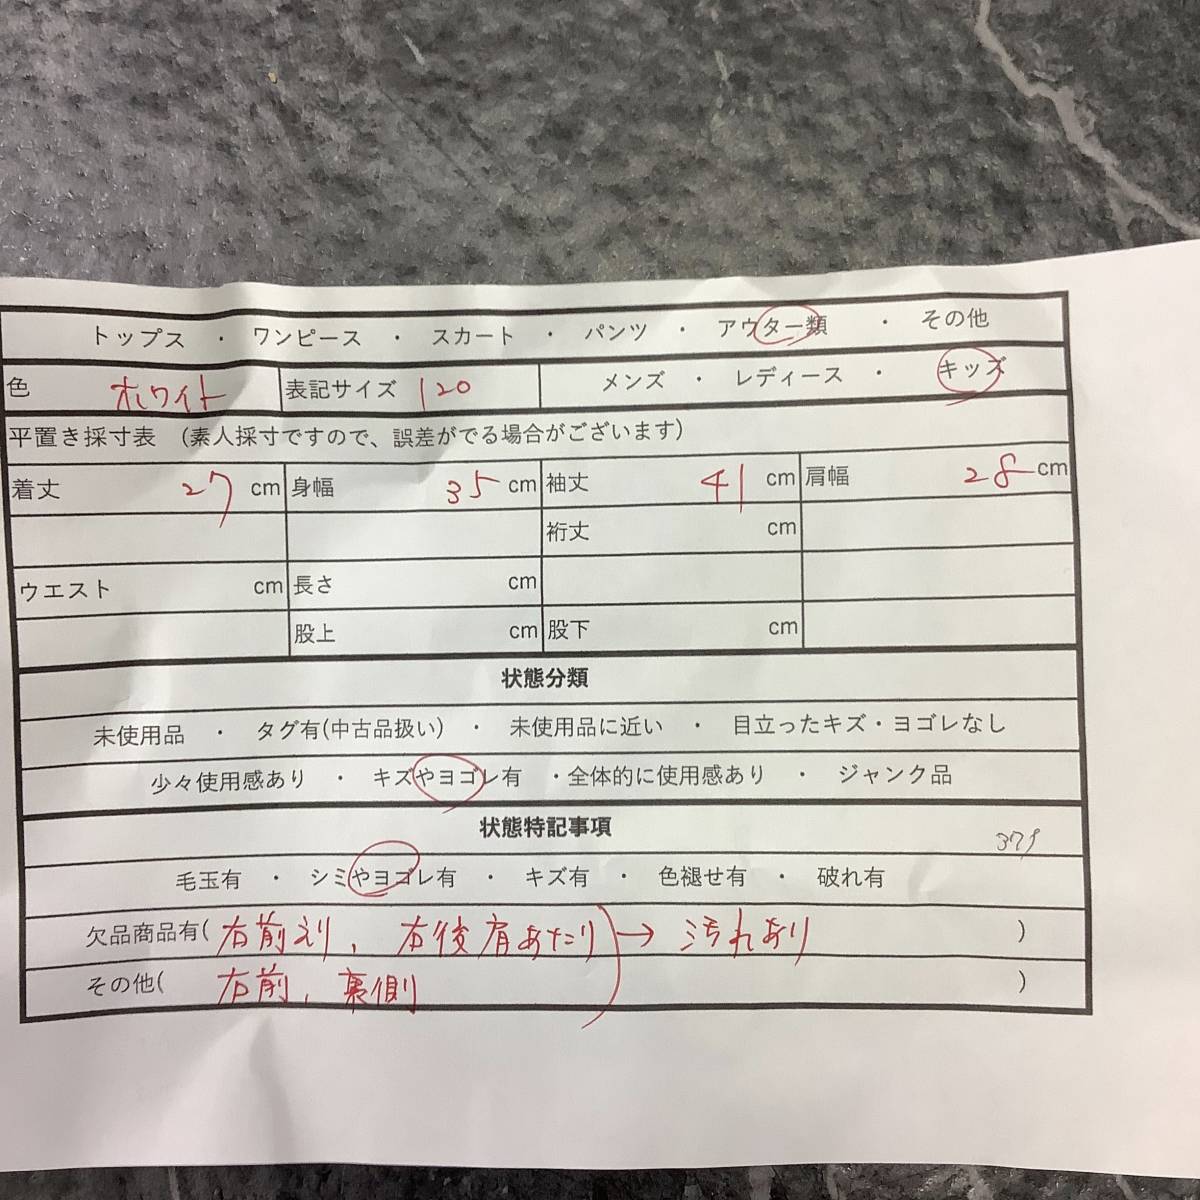 トップス ・ ワンピース ・ スカート ・ パンツ ・ アウター類 ・ その他
色 ホワイト 表記サイズ 120 メンズ ・ レディース ・ キッズ
平置き採寸表 (素人採寸ですので、誤差がでる場合がございます)
着丈 27 cm 身幅 35 cm 袖丈 41 cm 肩幅 28 cm
裄丈 cm
ウエスト cm 長さ cm
股上 cm 股下 cm
状態分類
未使用品 ・ タグ有(中古品扱い) ・ 未使用品に近い ・ 目立ったキズ・ヨゴレなし
少々使用感あり ・ キズやヨゴレ有 ・全体的に使用感あり ・ ジャンク品
状態特記事項
毛玉有 ・ シミやヨゴレ有 ・ キズ有 ・ 色褪せ有 ・ 破れ有
欠品商品有( 右前えり, 右後肩あたり → 汚れあり )
その他( 右前, 裏側 )